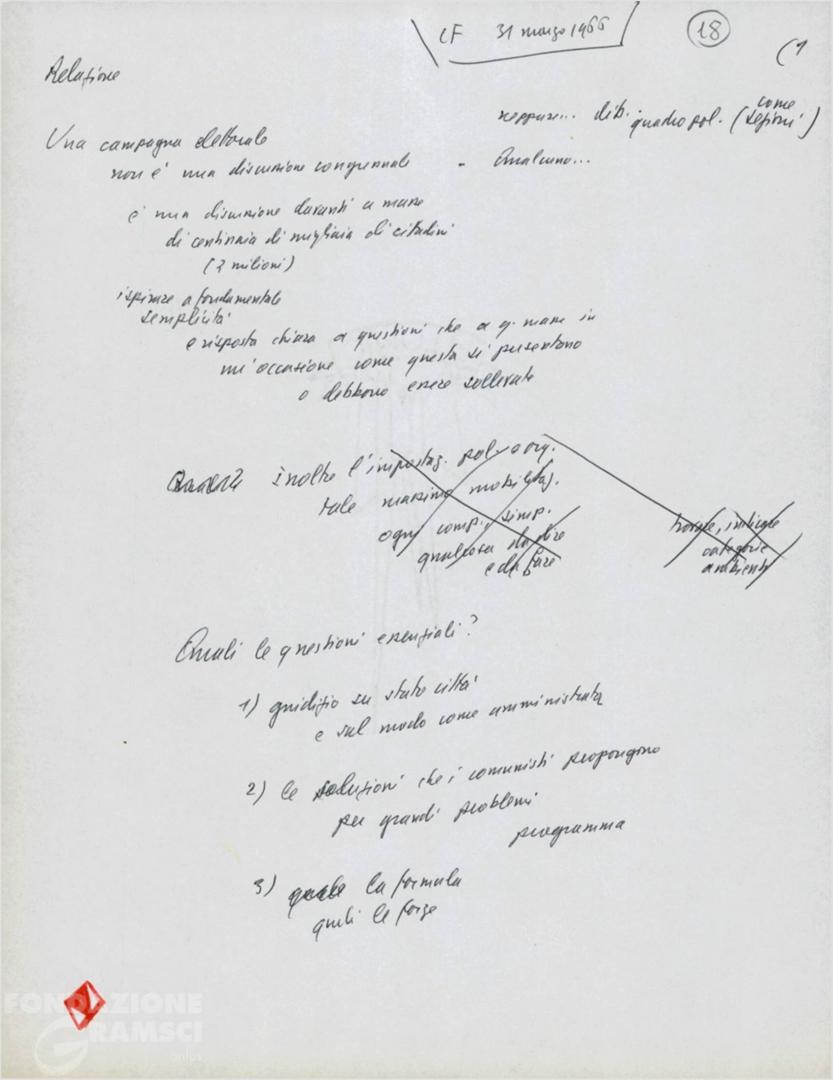 CF 31 marzo 1966
18
(1
Relazione
neppure... dib. quadro pol. (come sezioni)
Una campagna elettorale
non è una discussione congressuale - Qualcuno...
è una discussione davanti a masse
di centinaia di migliaia di cittadini
(2 milioni)
ispirare a fondamentale
semplicità
e risposta chiara a questioni che a q. masse in
un'occasione come questa si presentano
o debbono essere sollevate
inoltre l'impostaz. pol. o org.
tale massima mobilitaz.
ogni comp., simp.
qualcosa da dire
e da fare
categorie
ambienti
Quali le questioni essenziali?
1) giudizio su stato città
e sul modo come amministrata
2) le soluzioni che i comunisti propongono
per grandi problemi
programma
3) quale la formula
quali le forze
FONDAZIONE
GRAMSCI
onlus